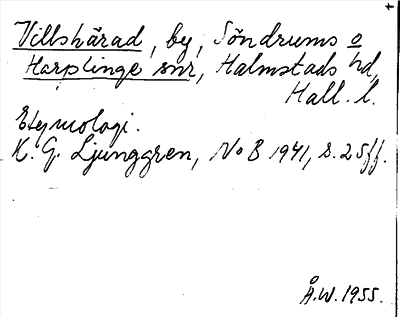 Villshärad, by, Söndrums o
Harplinge snr, Halmstads hd,
Hall. l.
Etymologi.
K. G. Ljunggren, NoB 1941, s. 25ff.
Å.W. 1955.